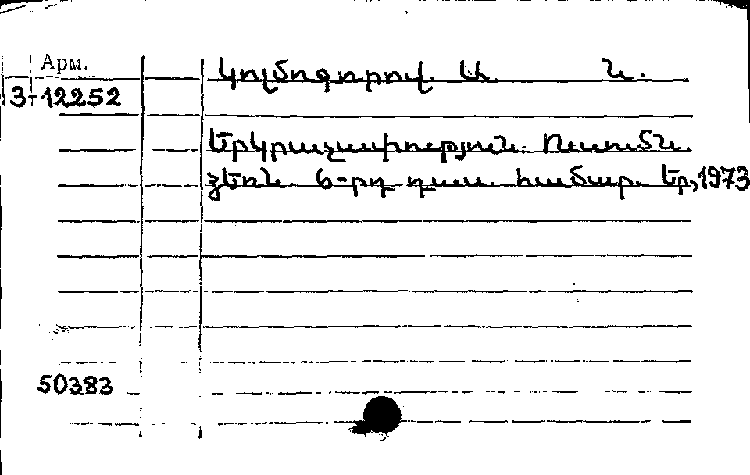 Арм.
Կոլմոգորով. Ա. Ն.
3-12252
Երկրաչափություն. Ուսումն.
ձեռն 6-րդ դաս. համար. Եր, 1973
50383